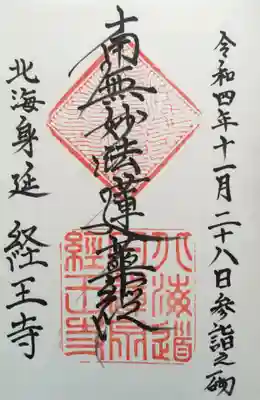 令和四年十一月二十八日参詣之砌
南無妙法蓮華経
北海身延 経王寺
北海道
経王寺